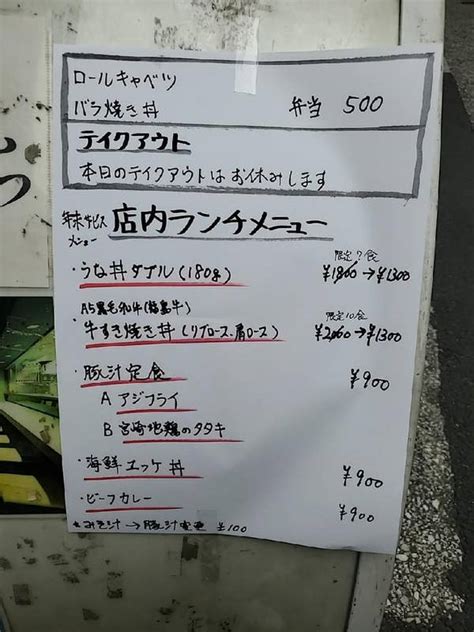 ロールキャベツ
バラ焼き丼 弁当 500
テイクアウト
本日のテイクアウトはお休みします
年末サービスメニュー 店内ランチメニュー
限定7食
・うな丼ダブル(180g) ¥1800→¥1300
A5黒毛和牛(福島牛) 限定10食
牛すき焼き丼(リブロース、肩ロース) ¥2000→¥1300
・豚汁定食 ¥900
A アジフライ
B 宮崎地鶏のタタキ
・海鮮ユッケ丼 ¥900
・ビーフカレー ¥900
*みそ汁→豚汁変更 ¥100